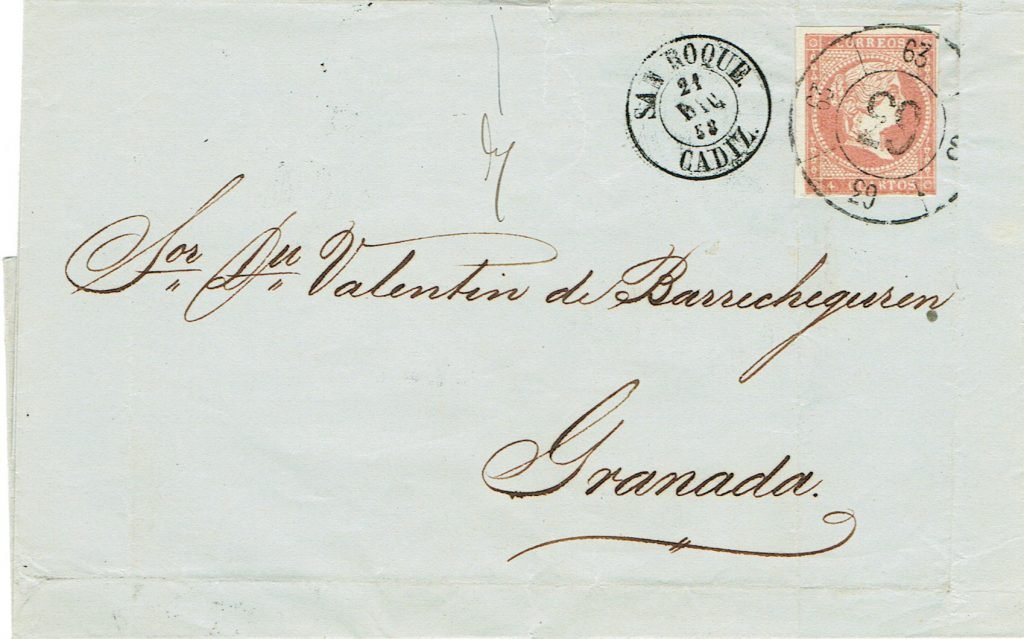 SAN ROQUE.
21
58
CADIZ.
CORREOS
63
63
63
63
3
CUARTOS
Sor. Dn. Valentin de Barrecheguren
Granada.